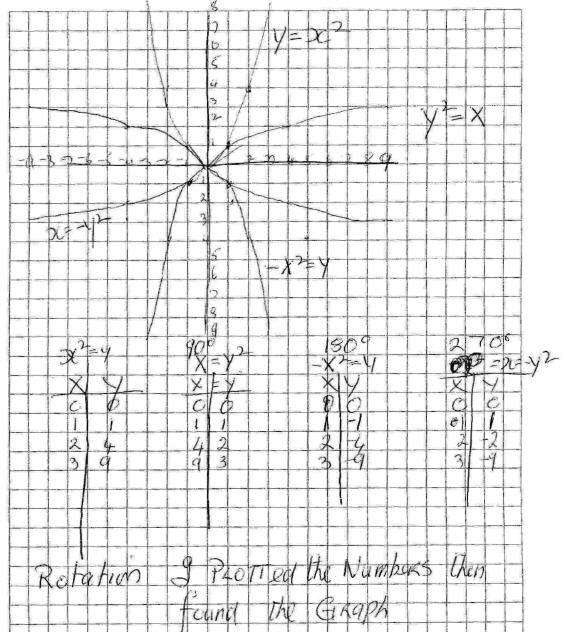 8
7
6
5
4
3
2
1
y=x²
y²=x
-9-8-7-6-5-4-3-2-1
2 3 4 5 6 7 8 9
x=-y²
1
2
3
5
6
7
8
9
-x²=y
x²=y
x y
0 0
1 1
2 4
3 9
90°
x=y²
x=y
0 0
1 1
4 2
9 3
180°
-x²=y
x y
0 0
1 -1
2 -4
3 -9
270°
=x=-y²
x y
0 0
1 1
2 -2
3 -9
Rotation I PLOTTed the Numbers then
found the GRAPH